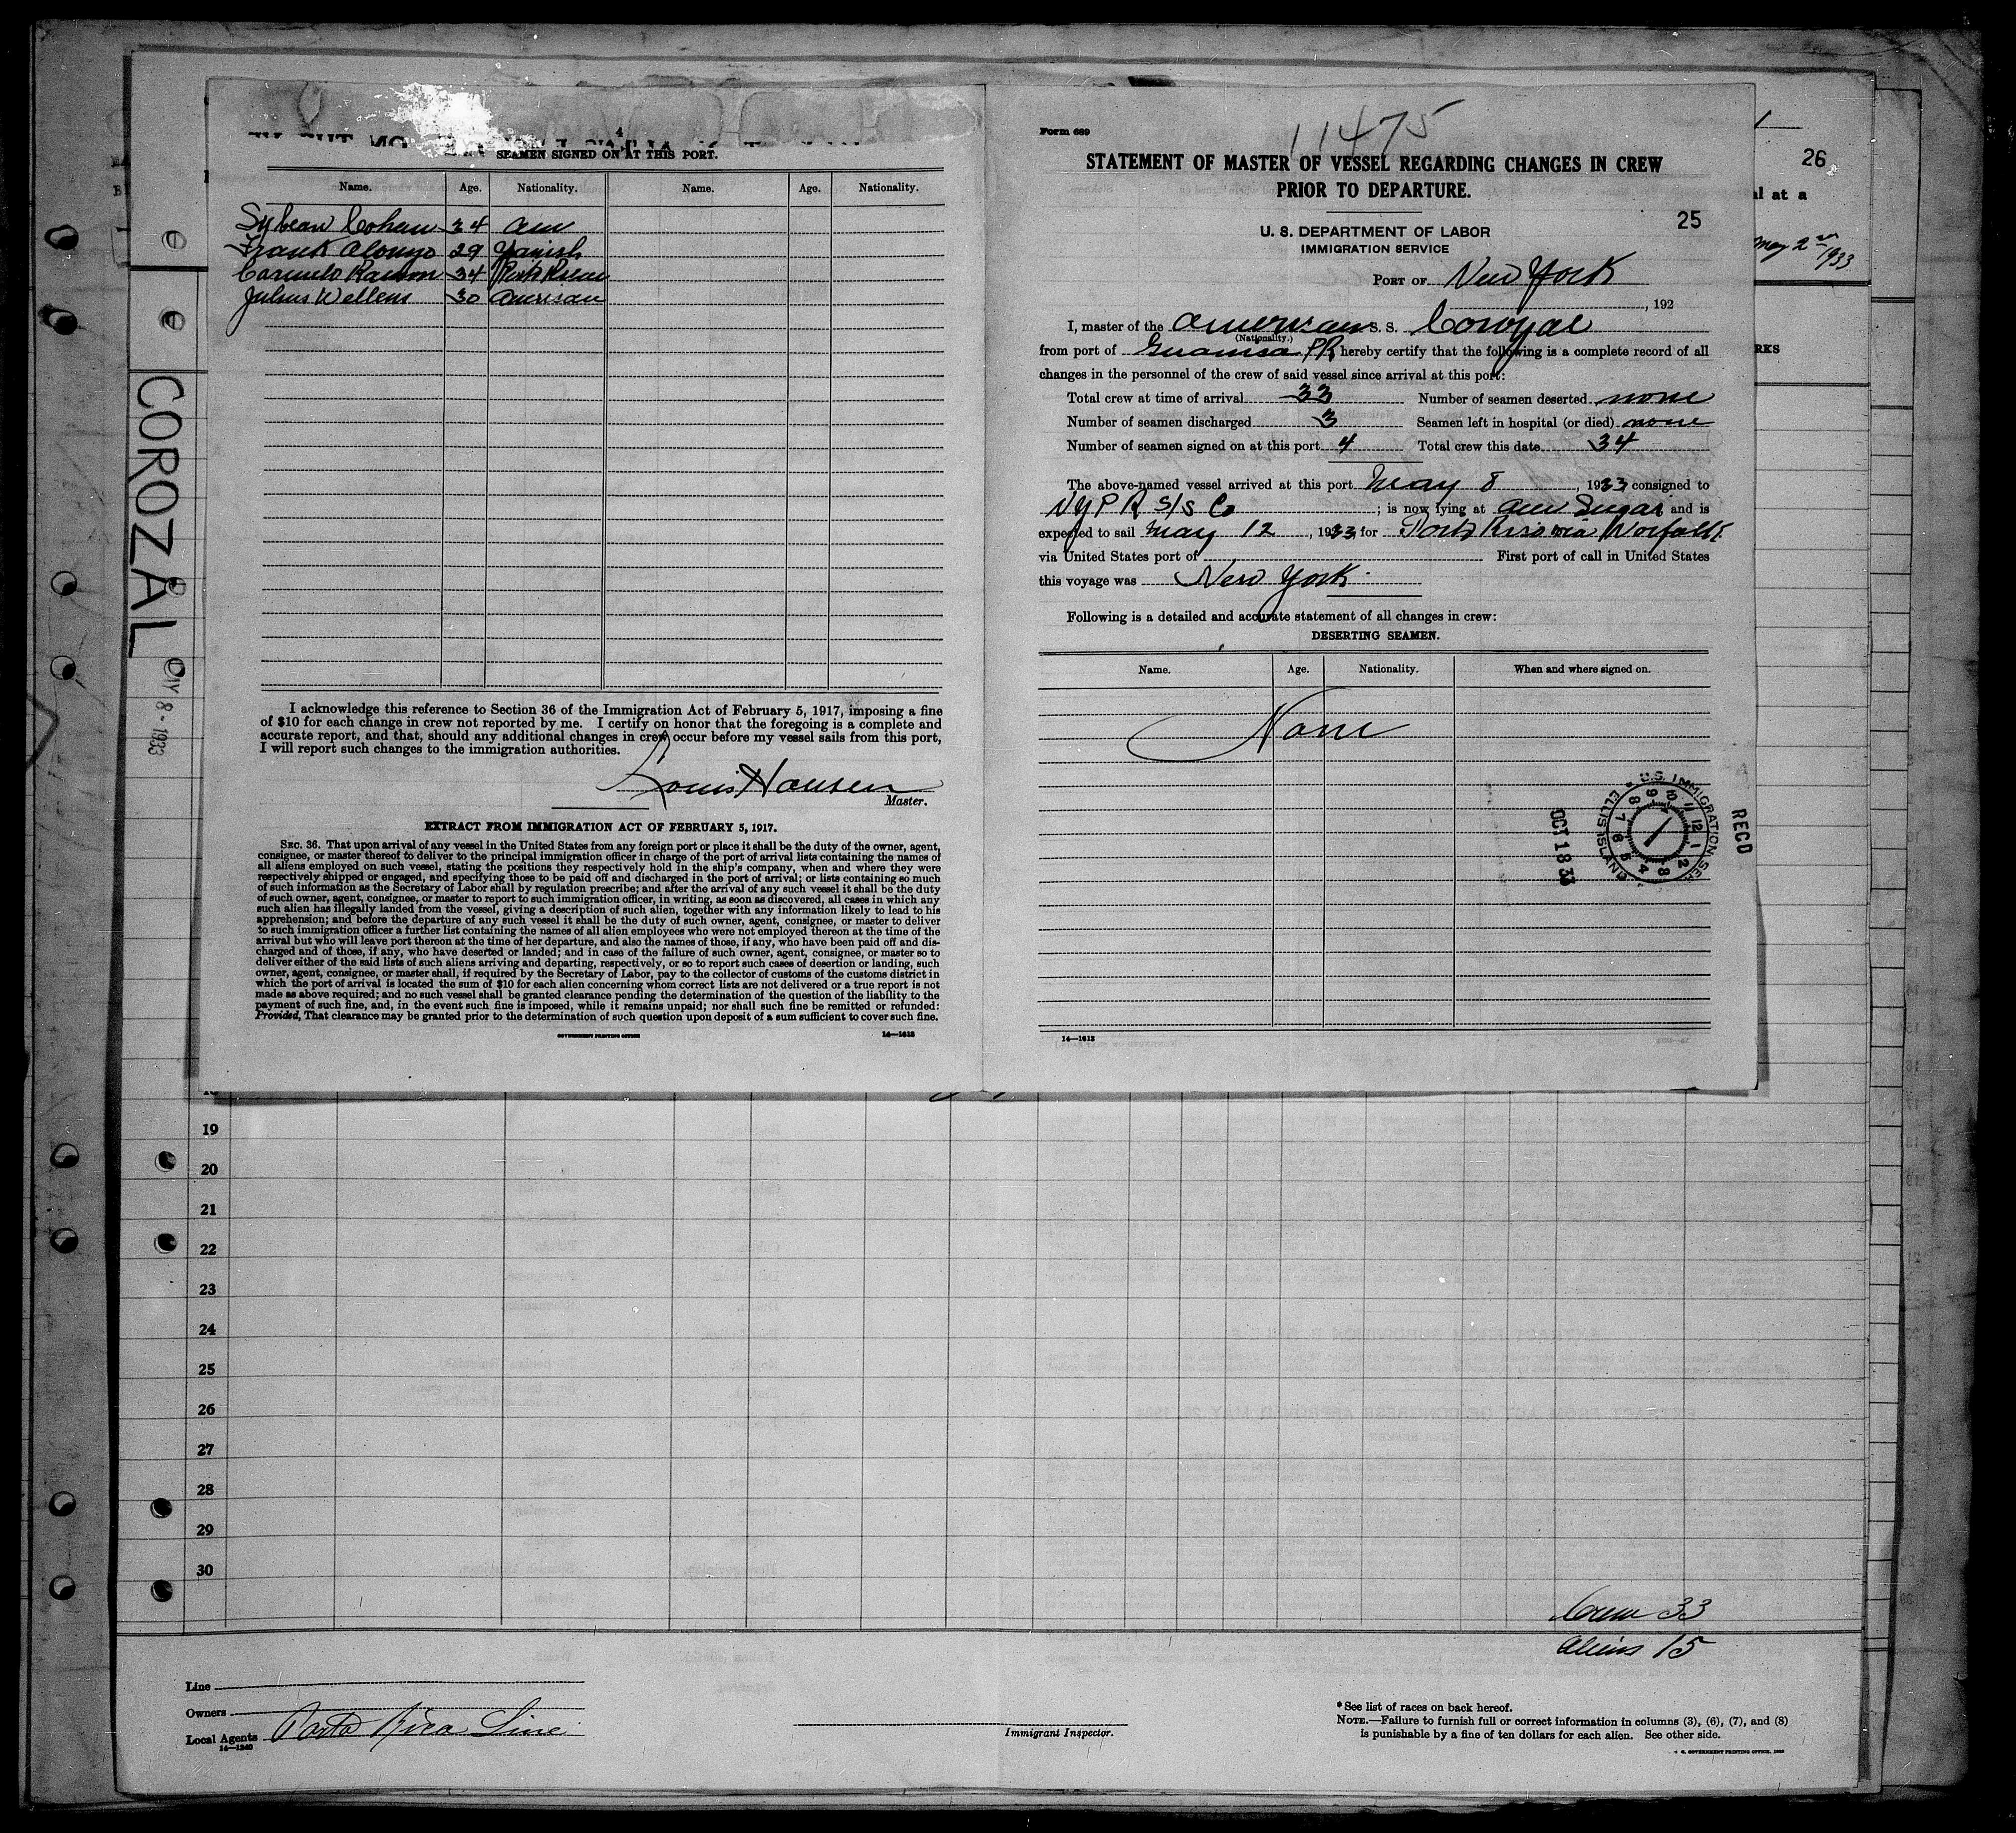 4
SEAMEN SIGNED ON AT THIS PORT.
Name. Age. Nationality. Name. Age. Nationality.
Cohen 34 Am
Frank Alonzo 29 Spanish
Carmelo Ramon 34 Porto Rican
Julius Wellens 30 American
I acknowledge this reference to Section 36 of the Immigration Act of February 5, 1917, imposing a fine
of $10 for each change in crew not reported by me. I certify on honor that the foregoing is a complete and
accurate report, and that, should any additional changes in crew occur before my vessel sails from this port,
I will report such changes to the immigration authorities.
Louis Hansen
Master.
EXTRACT FROM IMMIGRATION ACT OF FEBRUARY 5, 1917.
SEC. 36. That upon arrival of any vessel in the United States from any foreign port or place it shall be the duty of the owner, agent,
consignee, or master thereof to deliver to the principal immigration officer in charge of the port of arrival lists containing the names of
all aliens employed on such vessel, stating the positions they respectively hold in the ship's company, when and where they were
respectively shipped or engaged, and specifying those to be paid off and discharged in the port of arrival; or lists containing so much
of such information as the Secretary of Labor shall by regulation prescribe; and after the arrival of any such vessel it shall be the duty
of such owner, agent, consignee, or master to report to such immigration officer, in writing, as soon as discovered, all cases in which any
such alien has illegally landed from the vessel, giving a description of such alien, together with any information likely to lead to his
apprehension; and before the departure of any such vessel it shall be the duty of such owner, agent, consignee, or master to deliver
to such immigration officer a further list containing the names of all alien employees who were not employed thereon at the time of the
arrival but who will leave port thereon at the time of her departure, and also the names of those, if any, who have been paid off and dis-
charged and of those, if any, who have deserted or landed; and in case of the failure of such owner, agent, consignee, or master so to
deliver either of the said lists of such aliens arriving and departing, respectively, or so to report such cases of desertion or landing, such
owner, agent, consignee, or master shall, if required by the Secretary of Labor, pay to the collector of customs of the customs district in
which the port of arrival is located the sum of $10 for each alien concerning whom correct lists are not delivered or a true report is not
made as above required; and no such vessel shall be granted clearance pending the determination of the question of the liability to the
payment of such fine, and, in the event such fine is imposed, while it remains unpaid; nor shall such fine be remitted or refunded:
Provided, That clearance may be granted prior to the determination of such question upon deposit of a sum sufficient to cover such fine.
GOVERNMENT PRINTING OFFICE 14—1612
COROZAL
8 - 1933
Form 689
11475
STATEMENT OF MASTER OF VESSEL REGARDING CHANGES IN CREW
PRIOR TO DEPARTURE.
25
U. S. DEPARTMENT OF LABOR
IMMIGRATION SERVICE
PORT OF New York
, 192
I, master of the American S. S. Corozal
(Nationality.)
from port of Guanica PR hereby certify that the following is a complete record of all
changes in the personnel of the crew of said vessel since arrival at this port:
Total crew at time of arrival 33 Number of seamen deserted none
Number of seamen discharged 3 Seamen left in hospital (or died) none
Number of seamen signed on at this port 4 Total crew this date 34
The above-named vessel arrived at this port May 8, 1933 consigned to
NYPR S/S Co; is now lying at Am Sugar and is
expected to sail May 12, 1933, for Porto Rico via Norfolk
via United States port of First port of call in United States
this voyage was New York
Following is a detailed and accurate statement of all changes in crew:
DESERTING SEAMEN.
Name. Age. Nationality. When and where signed on.
None
RECD
U.S. IMMIGRATION SER
ELLIS ISLAND
OCT 18 33
14—1612
26
al at a
May 2nd 1933
RKS
19
20
21
22
23
24
25
26
27
28
29
30
Crew 33
Aliens 15
Line
Owners
Local Agents Porto Rico Line
14—1240
Immigrant Inspector.
* See list of races on back hereof.
NOTE.—Failure to furnish full or correct information in columns (3), (6), (7), and (8)
is punishable by a fine of ten dollars for each alien. See other side.
GOVERNMENT PRINTING OFFICE